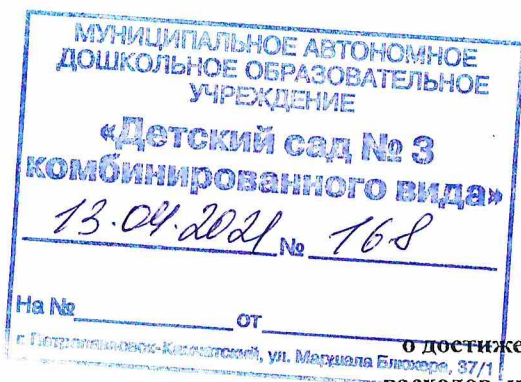 МУНИЦИПАЛЬНОЕ АВТОНОМНОЕ
ДОШКОЛЬНОЕ ОБРАЗОВАТЕЛЬНОЕ
УЧРЕЖДЕНИЕ
«Детский сад № 3
комбинированного вида»
13.04.2021 № 168
На № от
г. Петропавловск-Камчатский, ул. Маршала Блюхера, 37/1
о достиже
расходов